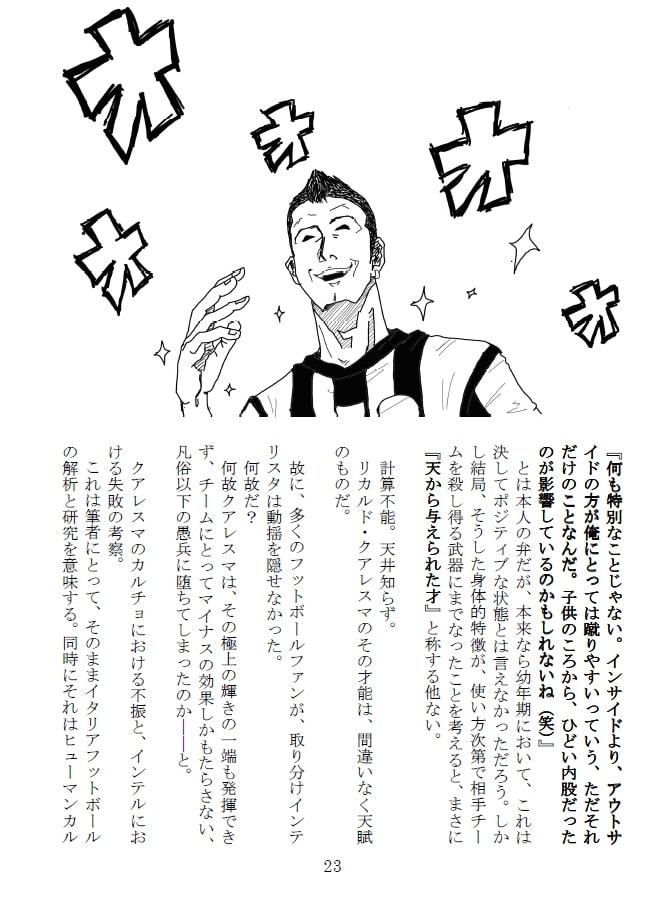 オ
オ
オ
オ
オ
『何も特別なことじゃない。インサイドより、アウトサ
イドの方が俺にとっては蹴りやすいっていう、ただそれ
だけのことなんだ。子供のころから、ひどい内股だった
のが影響しているのかもしれないね（笑）』
とは本人の弁だが、本来なら幼年期において、これは
決してポジティブな状態とは言えなかっただろう。しか
し結局、そうした身体的特徴が、使い方次第で相手チー
ムを殺し得る武器にまでなったことを考えると、まさに
『天から与えられた才』と称する他ない。
計算不能。天井知らず。
リカルド・クアレスマのその才能は、間違いなく天賦
のものだ。
故に、多くのフットボールファンが、取り分けインテ
リスタは動揺を隠せなかった。
何故だ？
何故クアレスマは、その極上の輝きの一端も発揮でき
ず、チームにとってマイナスの効果しかもたらさない、
凡俗以下の愚兵に堕ちてしまったのか――と。
クアレスマのカルチョにおける不振と、インテルにお
ける失敗の考察。
これは筆者にとって、そのままイタリアフットボール
の解析と研究を意味する。同時にそれはヒューマンカル
23